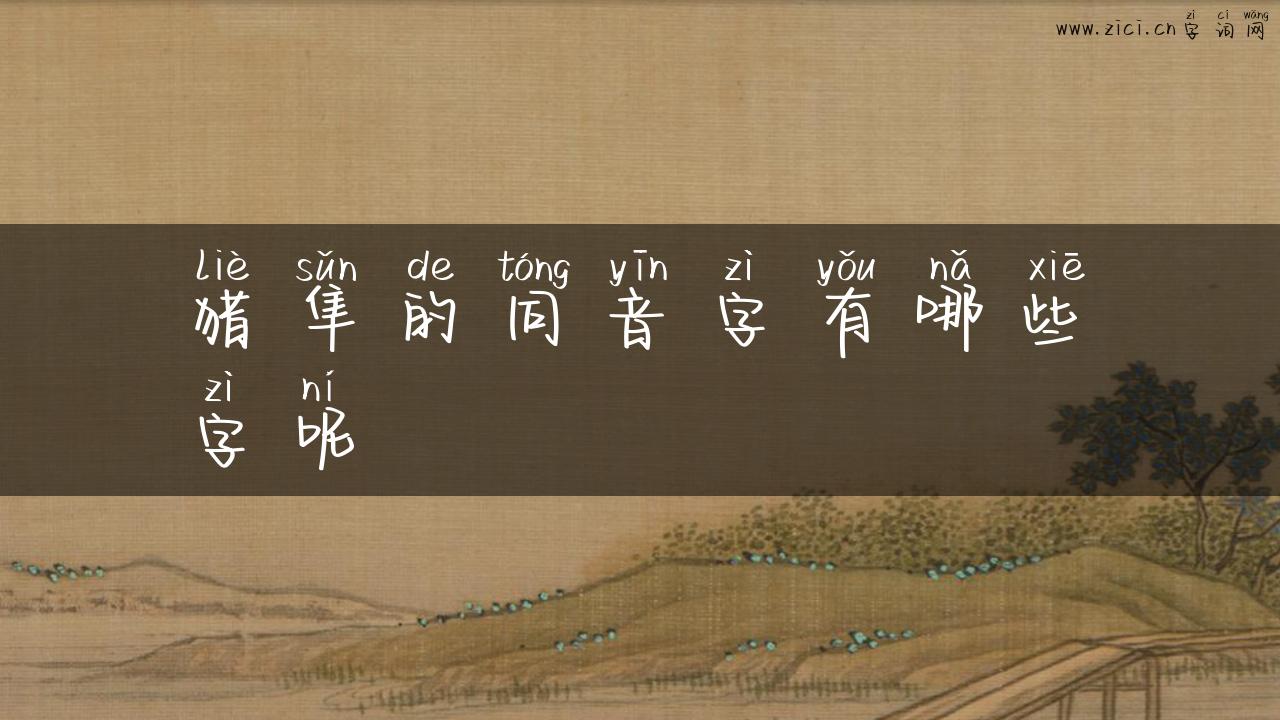 zì cí wǎng
www.zici.cn字词网
liè sǔn de tóng yīn zì yǒu nǎ xiē
猎隼的同音字有哪些
zì ní
字呢